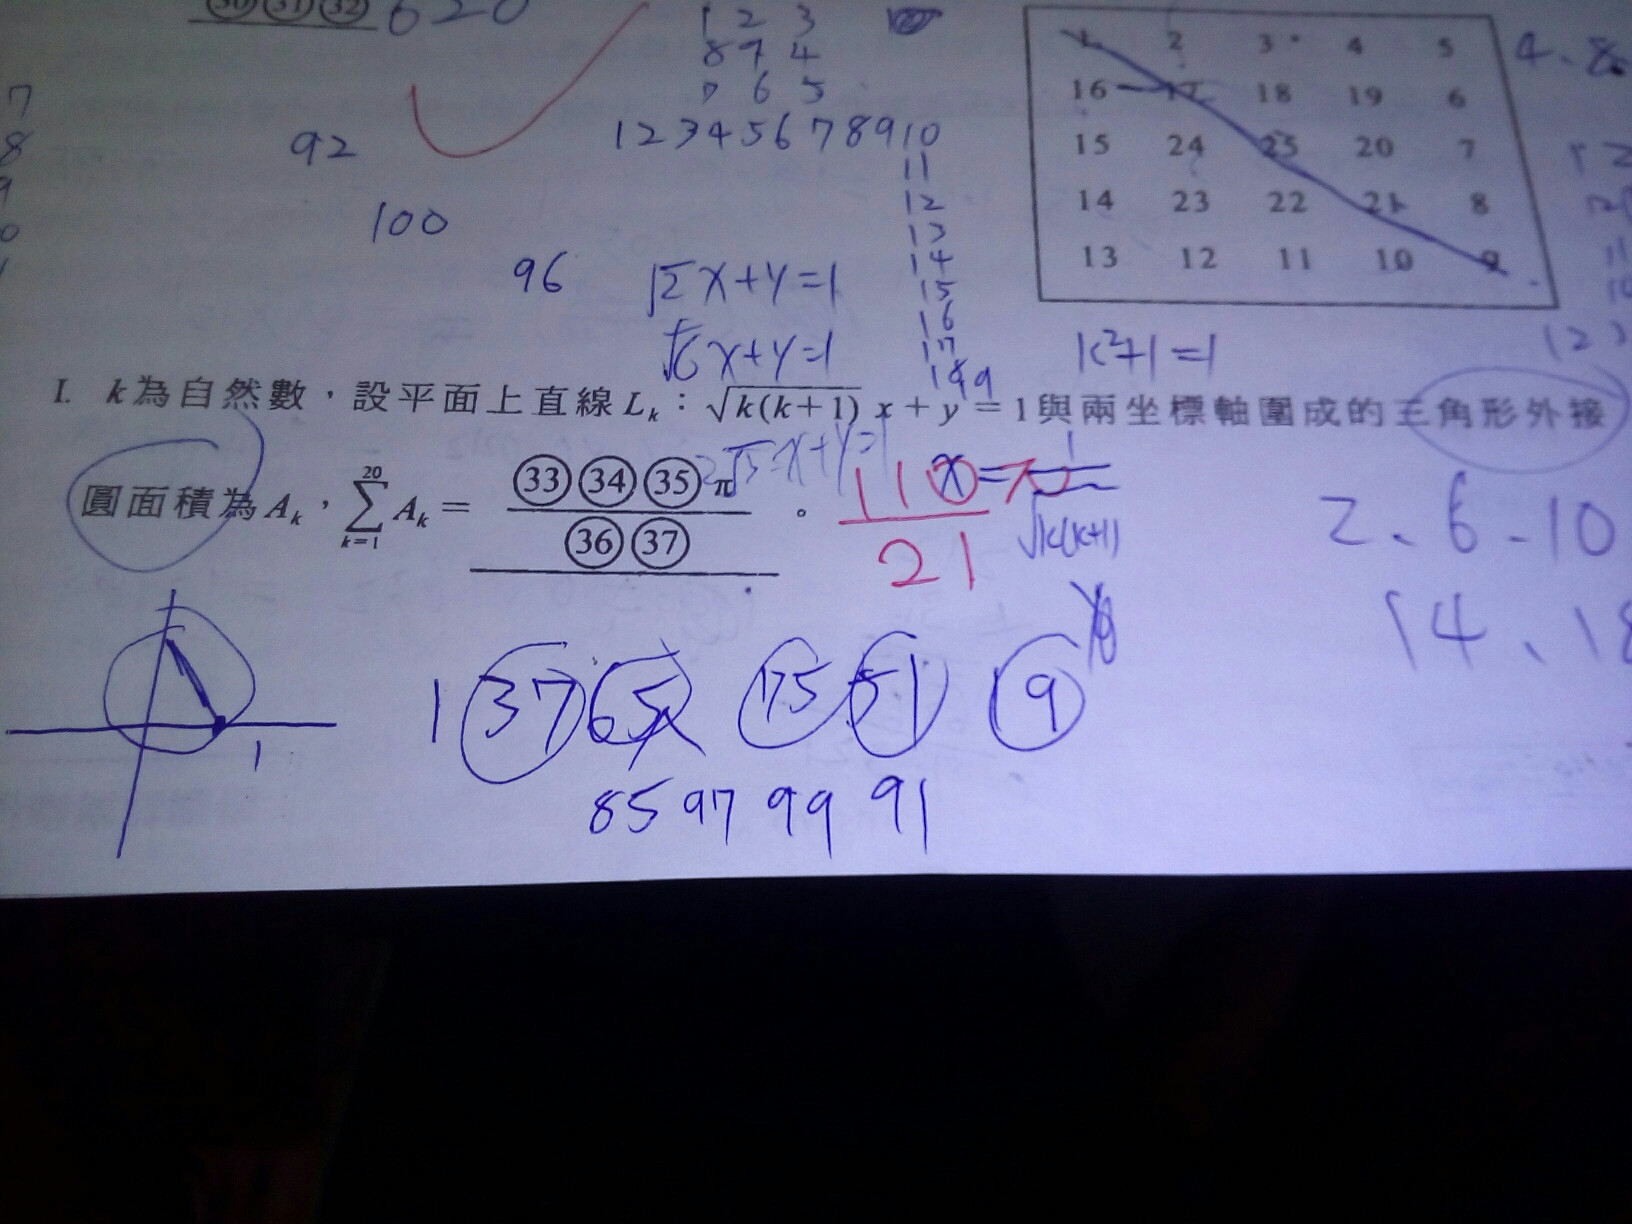 30 31 32 620
1 2 3
8 9 4
7 6 5
1 2 3 4 5 6 7 8 9 10
11
12
13
14
15
16
17
18 19
7
8
9
92
100
96
√2 x+y=1
√6 x+y=1
1 2 3 4 5
16 17 18 19 6
15 24 25 20 7
14 23 22 21 8
13 12 11 10 9
4、8
k²+1=1
I. k為自然數，設平面上直線Lₖ：√k(k+1) x + y = 1與兩坐標軸圍成的三角形外接
圓面積為Aₖ，∑ₖ₌₁²⁰ Aₖ = ㉝㉞㉟π / ㊱㊲ 。
2√3 x+y=1
110 π
21
x = 1/√k(k+1)
2、6、10
14、18
1
1 37 65 75 51 19
85 97 99 91